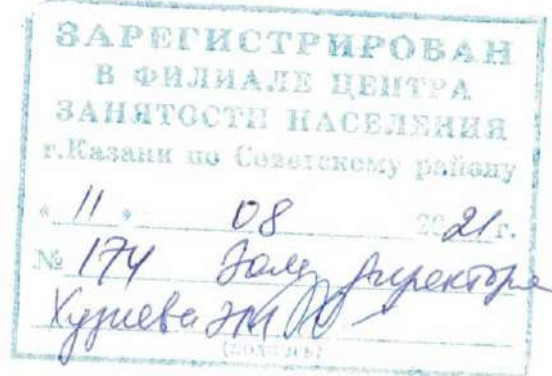 ЗАРЕГИСТРИРОВАН
В ФИЛИАЛЕ ЦЕНТРА
ЗАНЯТОСТИ НАСЕЛЕНИЯ
г.Казани по Советскому району
« 11 » 08 2021 г.
№ 174 директора
(подпись)